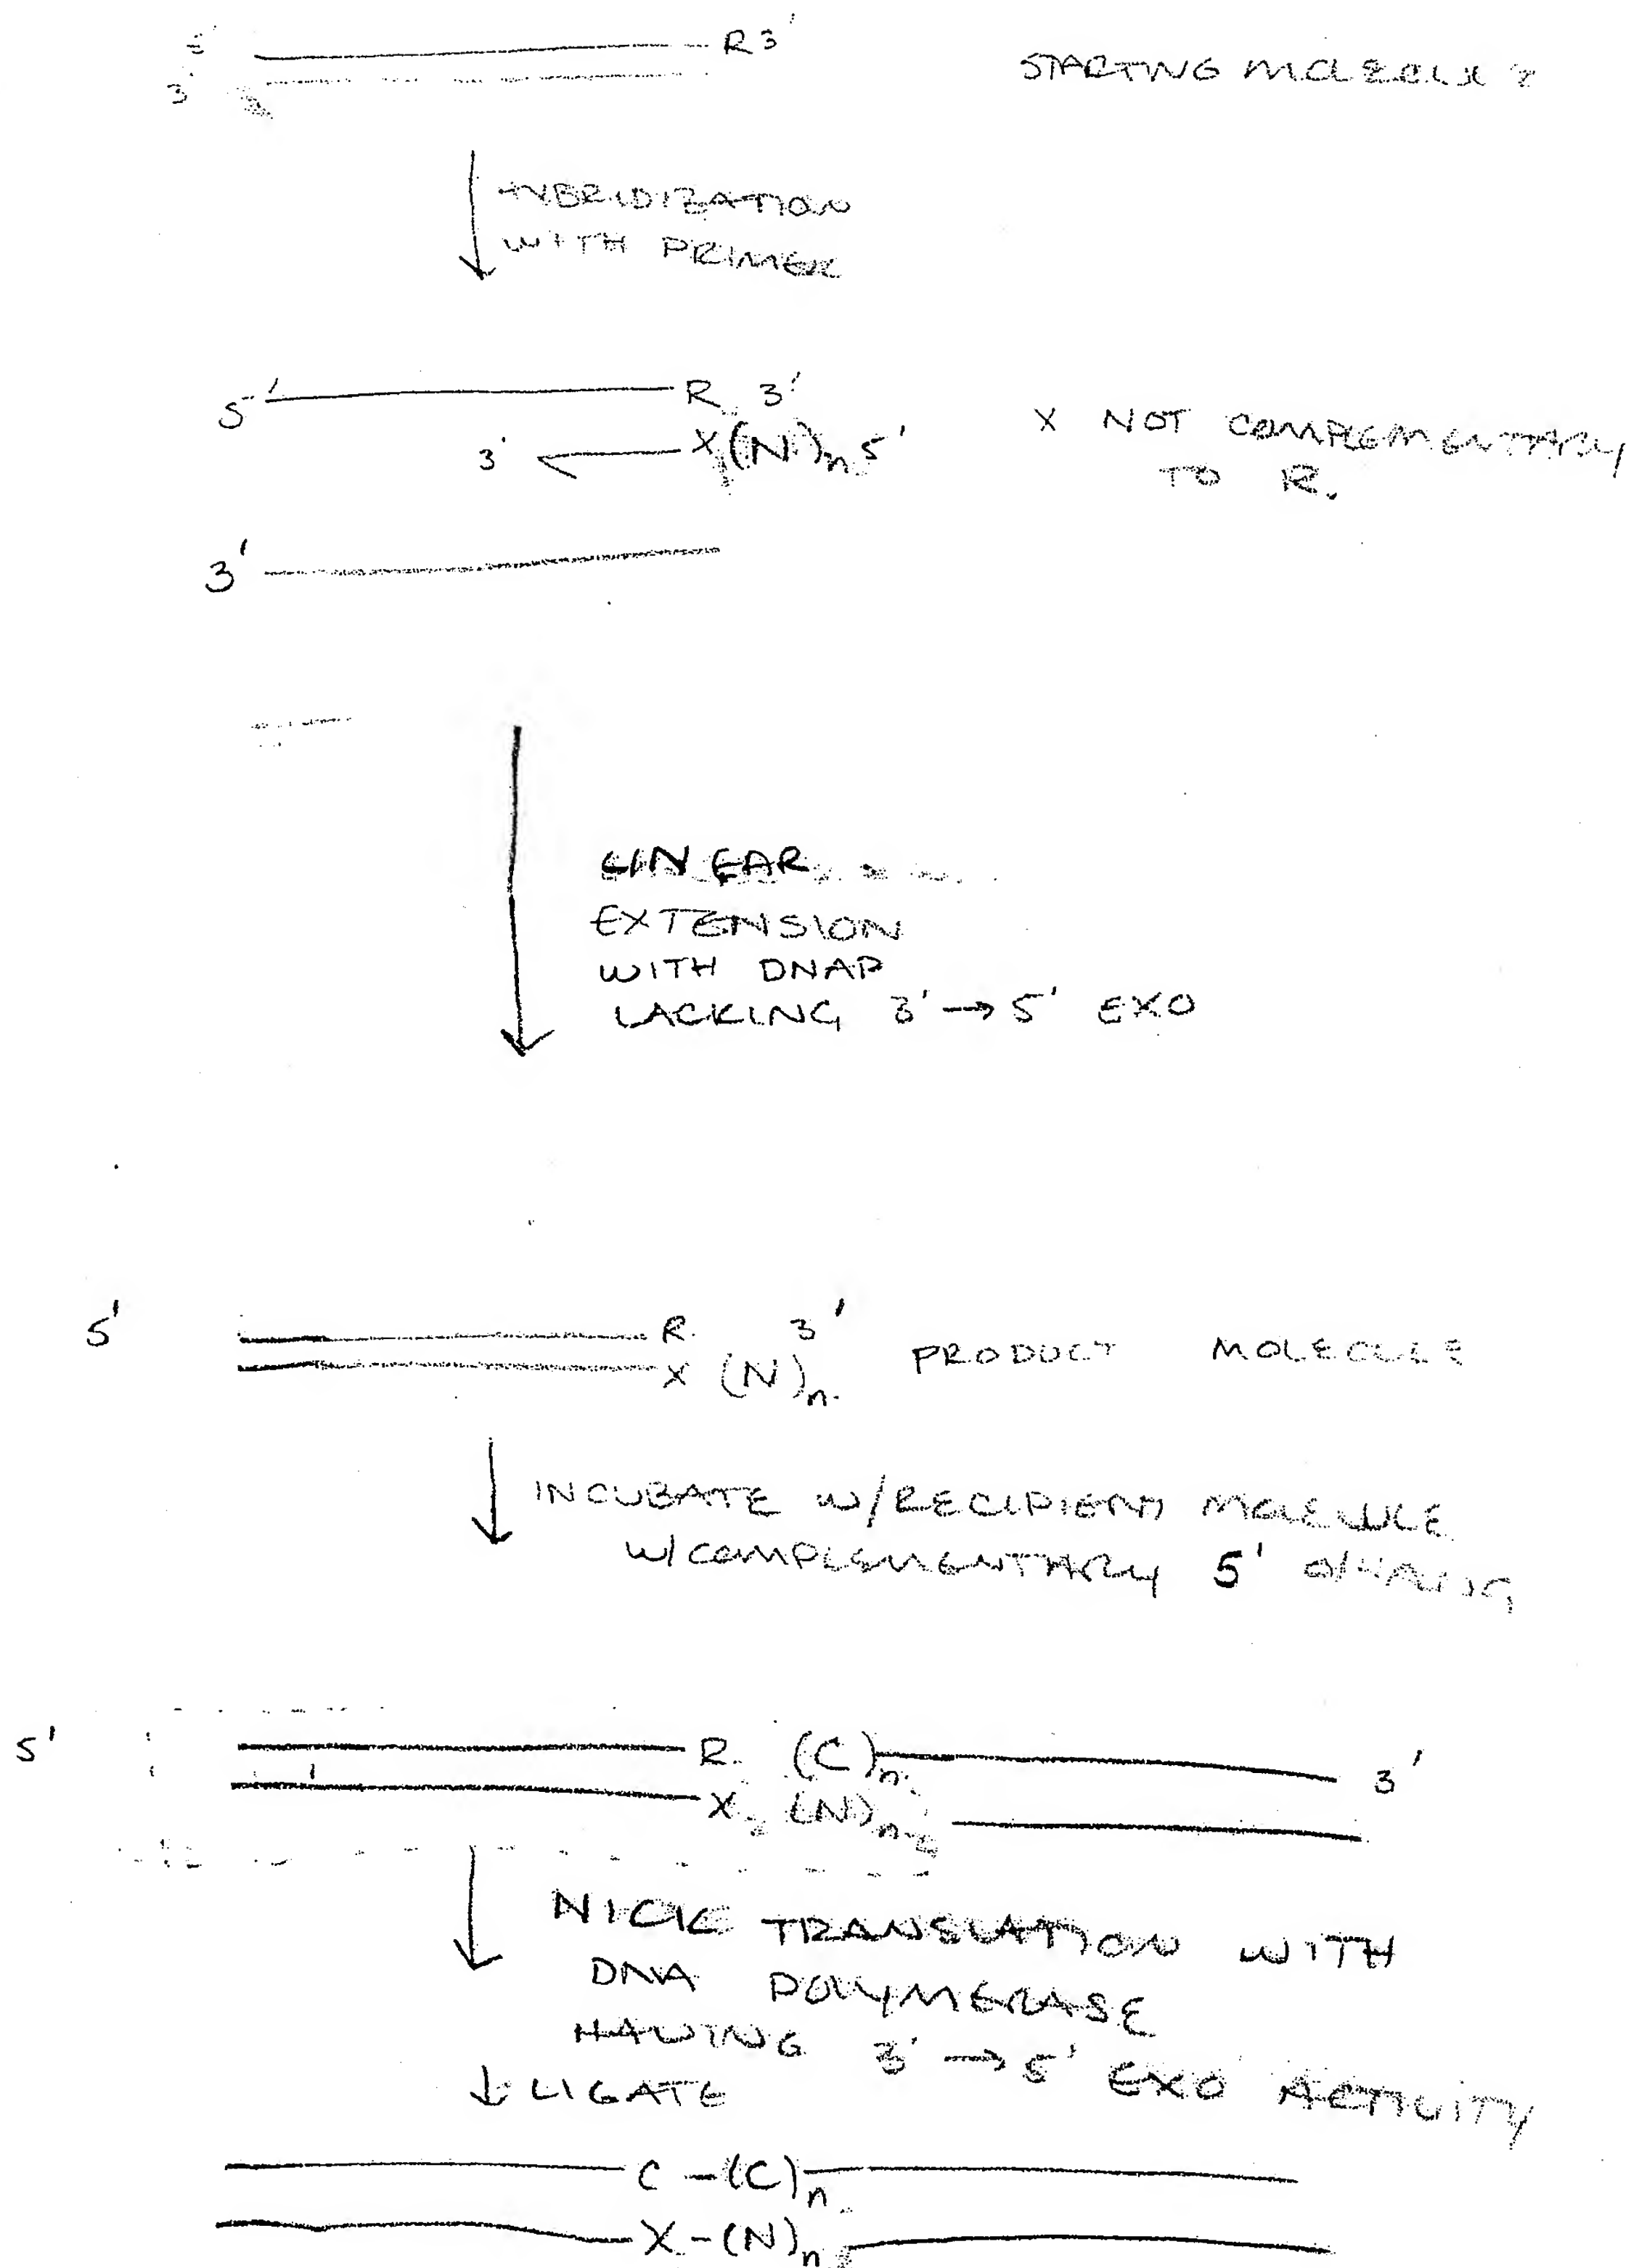 R 3'
3'
STARTING MOLECULE
HYBRIDIZATION
WITH PRIMER
5' R 3'
3' X(N)n 5'
X NOT COMPLEMENTARY
TO R.
3'
LINEAR
EXTENSION
WITH DNAP
LACKING 3' → 5' EXO
5' R 3'
X (N)n
PRODUCT MOLECULE
INCUBATE W/RECIPIENT MOLECULE
W/COMPLEMENTARY 5' O/HANG
5' R (C)n 3'
X (N)n
NICK TRANSLATION WITH
DNA POLYMERASE
HAVING 3' → 5' EXO ACTIVITY
LIGATE
C-(C)n
X-(N)n